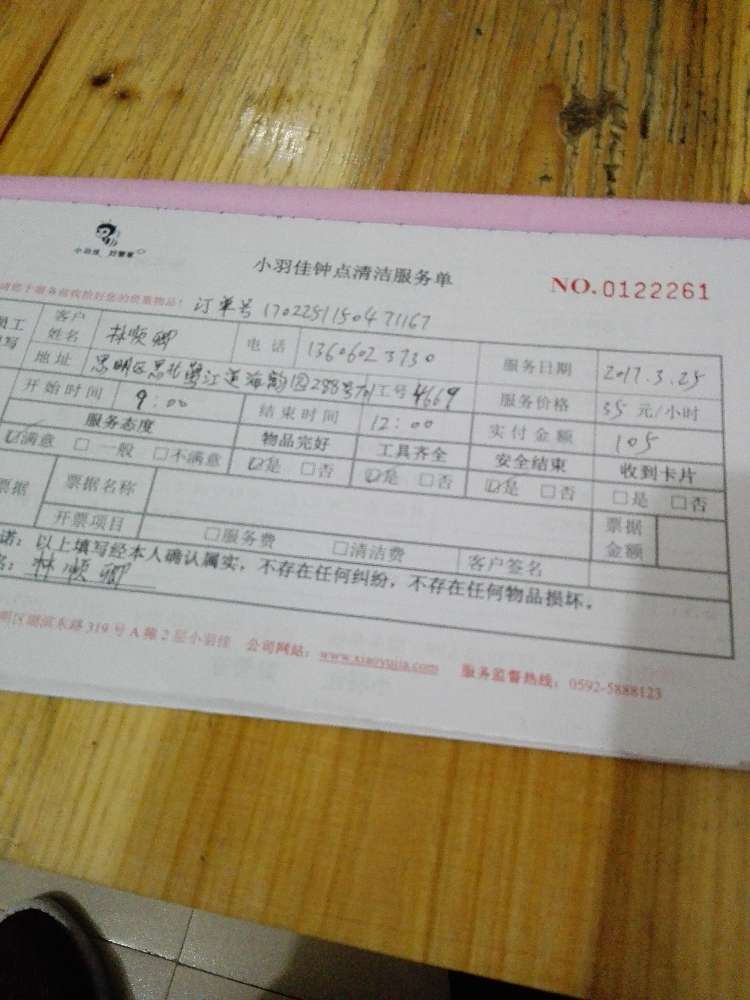 小羽佳 好管家
小羽佳钟点清洁服务单
NO.0122261
请您于服务前收拾好您的贵重物品! 订单号 1702251150471167
员工 客户姓名 林顺卿 电话 13606023730 服务日期 2017.3.25
填写 地址 思明区思北鹭江道海韵园288号701 工号 4669 服务价格 35 元/小时
开始时间 9:00 结束时间 12:00 实付金额 105
服务态度 物品完好 工具齐全 安全结束 收到卡片
☑满意 □一般 □不满意 ☑是 □否 ☑是 □否 ☑是 □否 □是 □否
票据 票据名称 票据金额
开票项目 □服务费 □清洁费 客户签名
诺:以上填写经本人确认属实,不存在任何纠纷,不存在任何物品损坏。
名:林顺卿
明区湖滨东路319号A苑2层小羽佳 公司网站:www.xiaoyujia.com 服务监督热线:0592-5888123